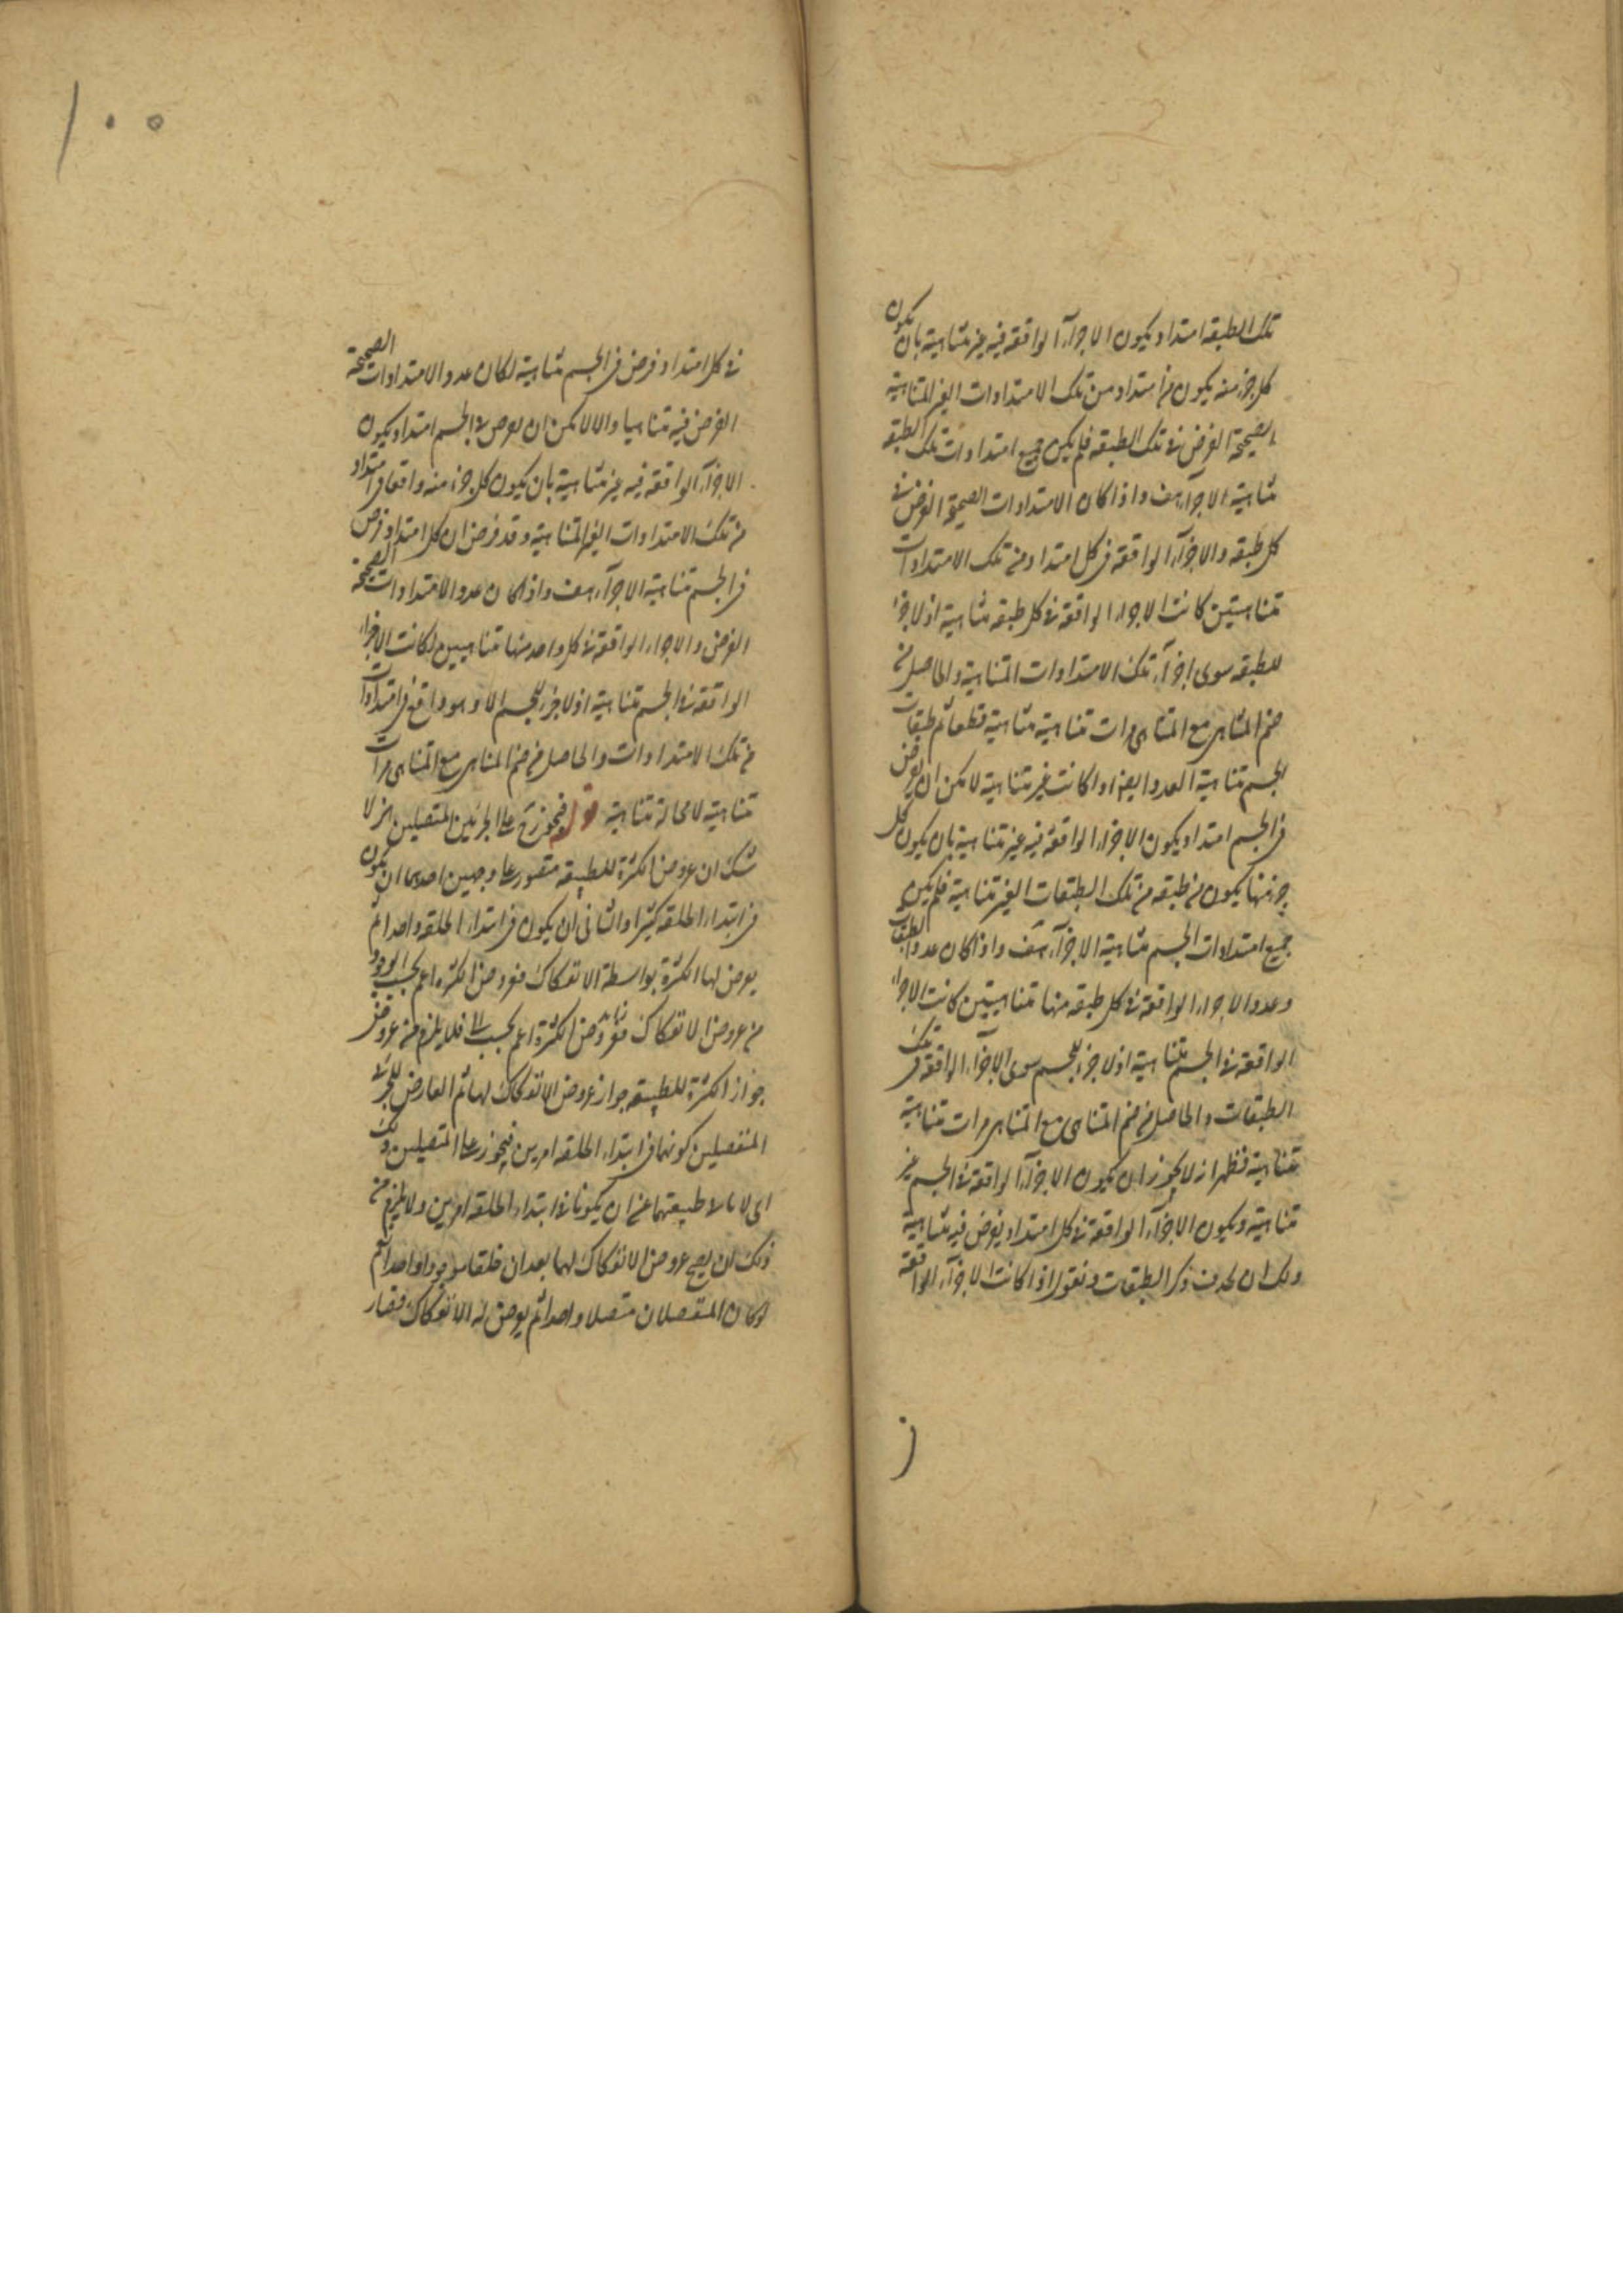 تلك الطبقه امتداد يكون الاجزاء الواقعة فيه غير متناهية بان يكون
كل جزء منه يكون فى امتداد من تلك الامتدادات الغير المتناهية
الصحيحة الفرض فى تلك الطبقه فلم يكن جميع امتدادات تلك الطبقه
متناهية الاجزاء هف واذا كان الامتدادات الصحيحة الفرض فى
كل طبقه والاجزاء الواقعة فى كل امتداد من تلك الامتدادات
متناهيتين كانت الاجزاء الواقعة فى كل طبقه متناهية اذ لا جزء
للطبقه سوى اجزاء تلك الامتدادات المتناهية والحاصل من
ضم المتناهى مع المتناهى مرات متناهية متناهية قطعا ثم طبقات
الجسم متناهية العدد ايضا اذ لو كانت غير متناهية لامكن ان يفرض
فى الجسم امتداد يكون الاجزاء الواقعة فيه غير متناهية بان يكون كل
جزء منها يكون فى طبقه من تلك الطبقات الغير متناهية فلم يكن
جميع امتدادات الجسم متناهية الاجزاء هف واذا كان عدد الطبقات
وعدد الاجزاء الواقعة فى كل طبقه منها متناهيتين كانت الاجزاء
الواقعة فى الجسم متناهية اذ لا جزء للجسم سوى الاجزاء الواقعة فى تلك
الطبقات والحاصل من ضم المتناهى مع المتناهى مرات متناهية
متناهية فظهر انه لا يجوز ان يكون الاجزاء الواقعة فى الجسم غير
متناهية ويكون الاجزاء الواقعة فى كل امتداد يفرض فيه متناهية
ولك ان تحذف ذكر الطبقات وتقول اذا كانت الاجزاء الواقعة
ز
١٠٠
فى كل امتداد فرض فى الجسم متناهية لكان عدد الامتدادات الصحيحة
الفرض فيه متناهيا والا لامكن ان يفرض فى الجسم امتداد يكون
الاجزاء الواقعة فيه غير متناهية بان يكون كل جزء منه واقعا فى امتداد
من تلك الامتدادات الغير المتناهية وقد فرض ان كل امتداد فرض
فى الجسم متناهية الاجزاء هف واذا كان عدد الامتدادات الصحيحة
الفرض والاجزاء الواقعة فى كل واحد منها متناهيين لكانت الاجزاء
الواقعة فى الجسم متناهية اذ لا جزء للجسم الا وهو واقع فى امتدادات
من تلك الامتدادات والحاصل من ضم المتناهى مع المتناهى مرات
متناهية لا محالة متناهية قوله فيجوز ح على الجزئين المتصلين انه لا
شك ان عروض الكثرة للطبيعة متصور على وجهين احدهما ان يكون
فى ابتداء الخلقة كثيرا والثانى ان يكون فى ابتداء الخلقة واحدا ثم
يعرض لها الكثرة بواسطة الانفكاك فعروض الكثرة اعم بحسب الوجود
من عروض الانفكاك فعروض الكثرة اعم بحسب فلا يلزم من عروض
جواز الكثرة للطبيعة جواز عروض الانفكاك لها ثم العارض للجزئين
المنفصلين كونهما فى ابتداء الخلقة امرين فيجوز على المتصلين ذلك
اى لا طبيعتهما عن ان يكونا فى ابتداء الخلقة امرين ولا يلزم من
ذلك ان يصح عروض الانفكاك لهما بعد ان خلقا موجودا واحدا ثم
لو كان المنفصلان متصلا واحدا ثم يعرض له الانفكاك فصار